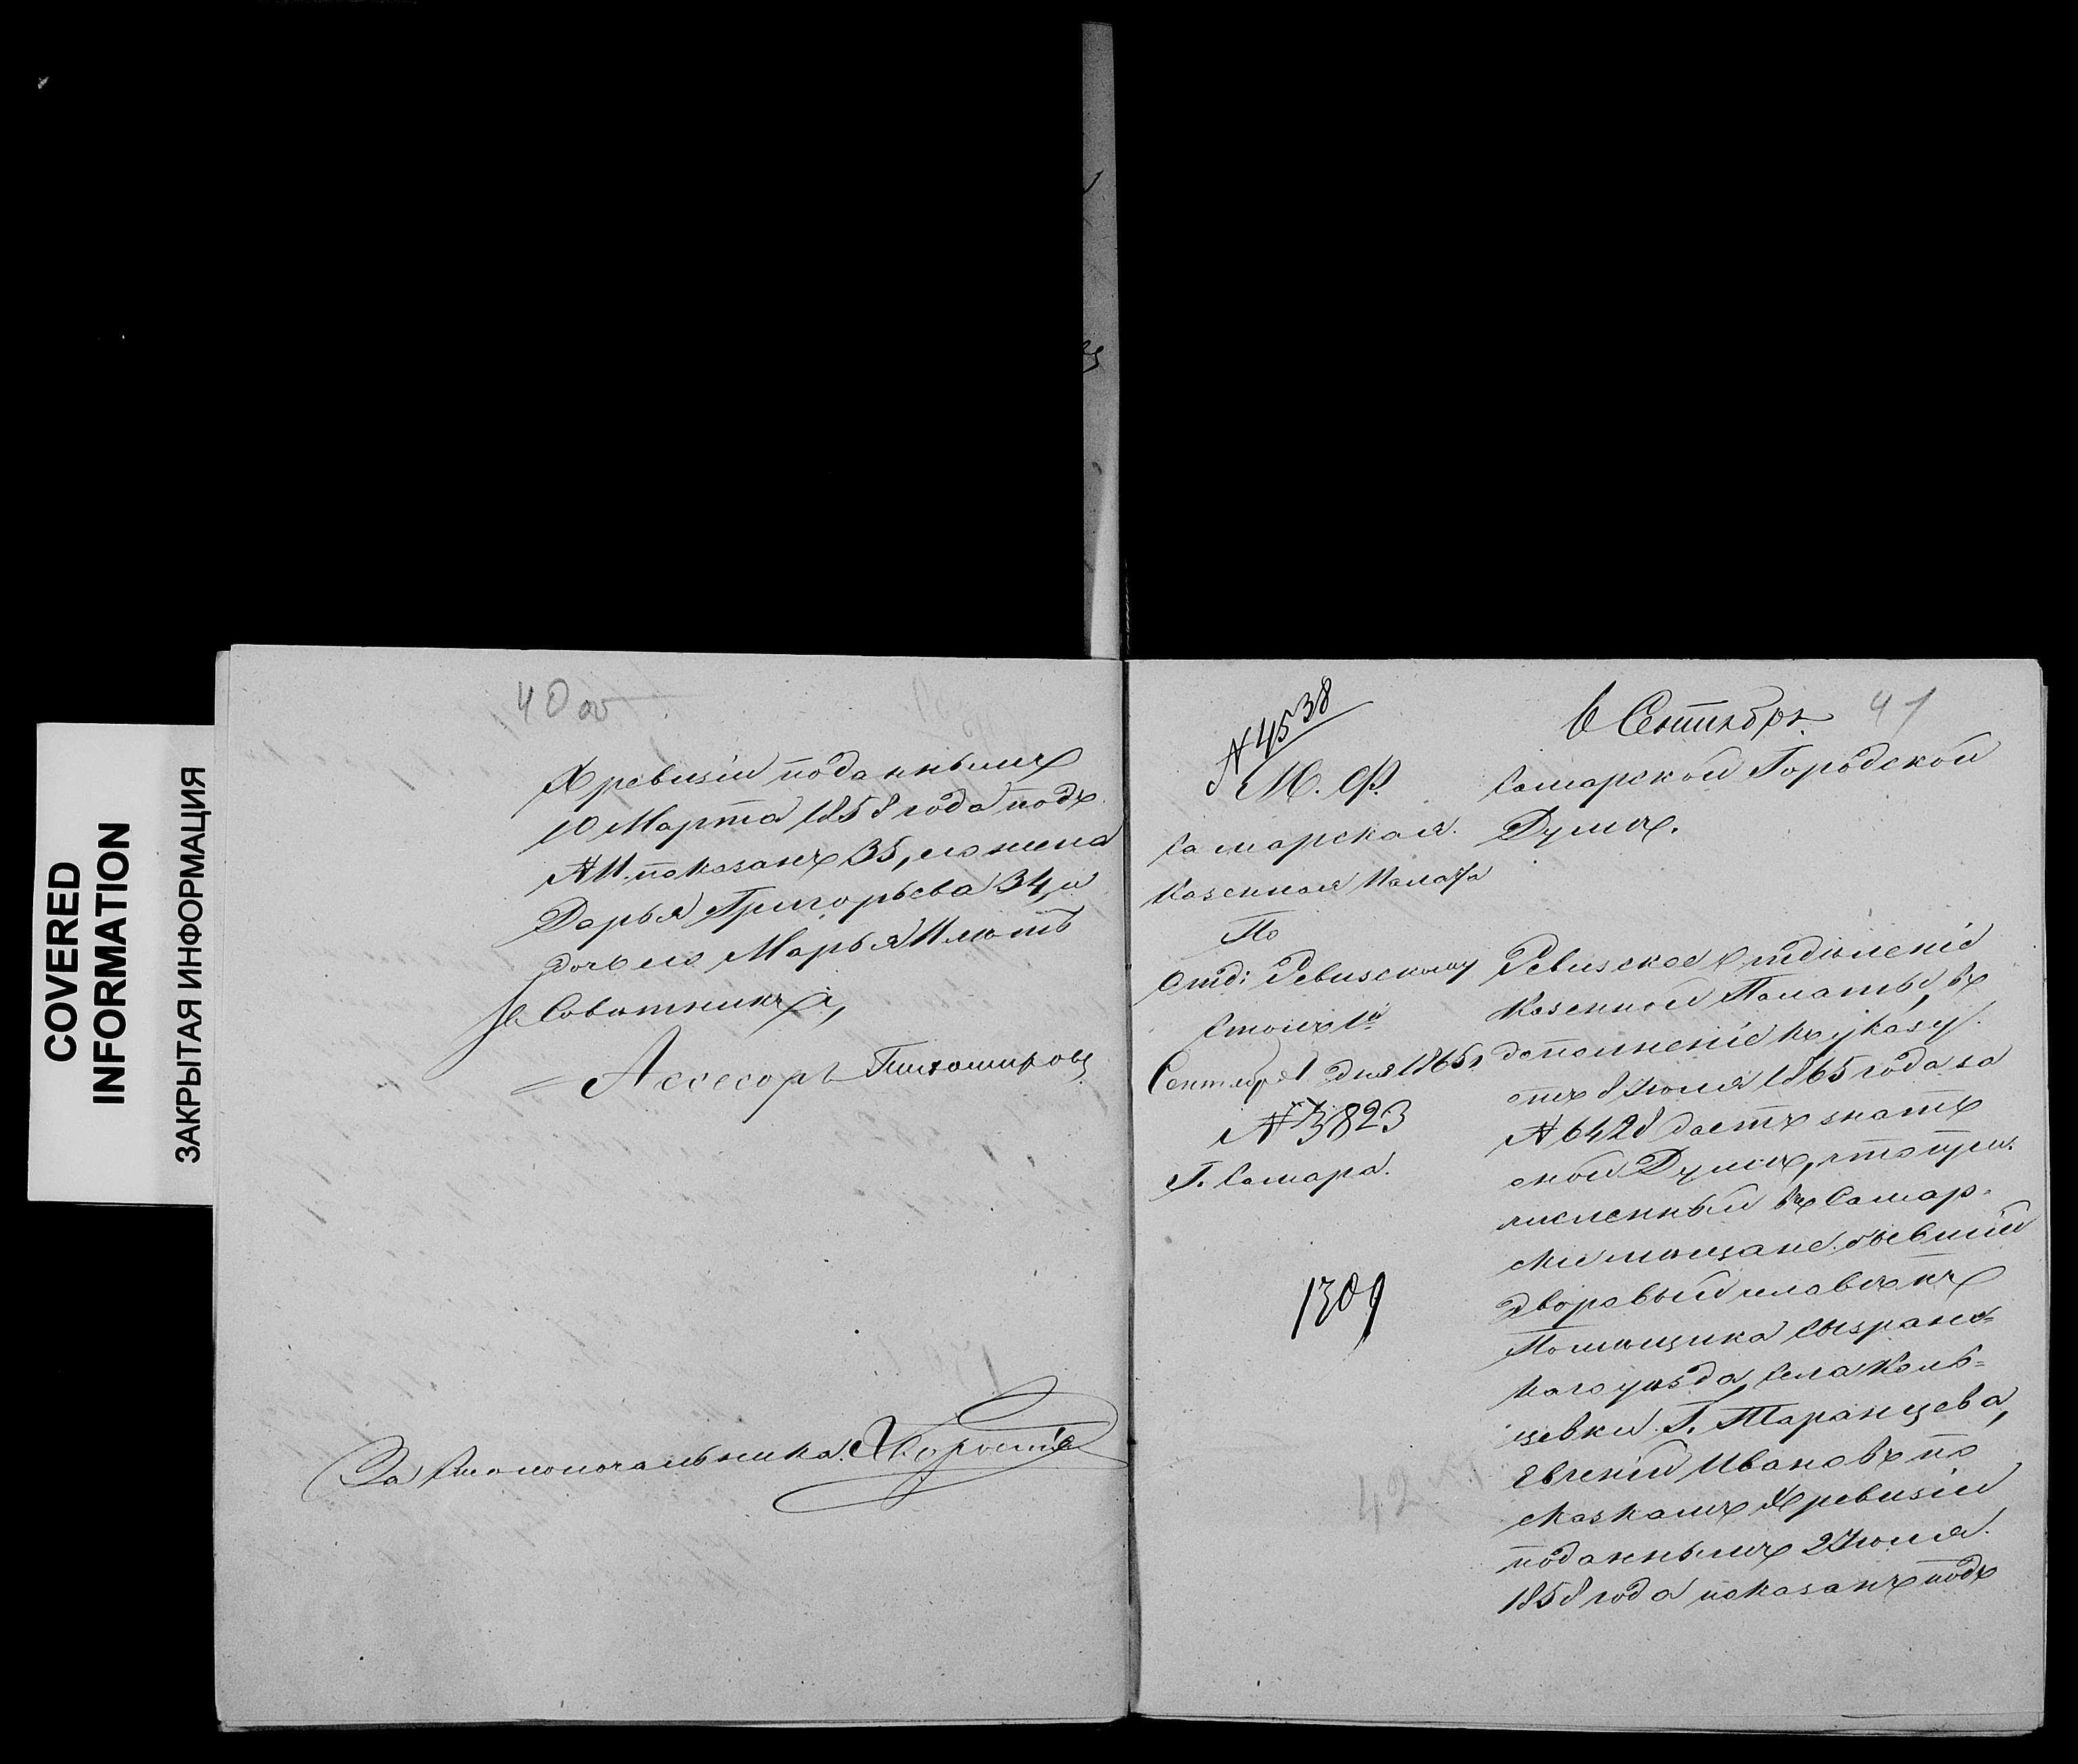 COVERED
INFORMATION
ЗАКРЫТАЯ ИНФОРМАЦИЯ
40 об
X ревизіи поданнымъ
10 Марта 1858 года подъ
№ 11. показанъ 35, его жена
Дарья Григорьева 34, и
дочь его Марья 11 лѣтъ
За Совѣтника,
Ассесоръ Тихомировъ
За Столоначальника
№ 4538
М. Ф.
Самарская
Казенная Палата
По
Отд: Ревизскому
Столъ 1й
Сентября 1 дня 1865 г
№ 3823
Г. Самара.
1309
42
6 Сентября
41
Самарской Городской
Думѣ.
Ревизское отдѣленіе
Казенной Палаты, въ
дополненіе къ указу
отъ 8 Іюля 1865 года за
№ 6428 даетъ знать
оной Думѣ, что при-
численный въ Самар-
скіе мѣщане бывшій
дворовый человѣкъ
Помѣщика Сызранс-
каго уѣзда, села Коль-
цевки Г. Таранцева,
Евгеній Ивановъ по
сказкамъ X ревизіи
поданнымъ 2 Іюля
1858 года показанъ подъ